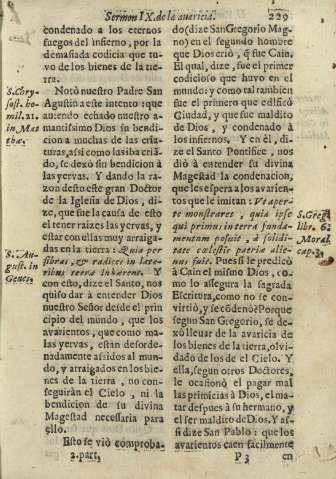 Sermon IX. de la avaricia. 229
condenado a los eternos
fuegos del infierno, por la
demasiada codicia que tu-
vo de los bienes de la tie-
rra.
Notò nuestro Padre San
Agustin a este intento: que
auiendo echado nuestro a-
mantissimo Dios su bendi-
cion a muchas de las cria-
turas, assi como las iba criã-
do, se dexò sin bendicion à
las yervas. Y dando la ra-
zon desto este gran Doctor
de la Iglesia de Dios, di-
ze, que fue la causa de esto
el tener raizes las yervas, y
estar con ellas muy arraiga-
das en la tierra: Quia per
fibras, & radices in late-
ribus terræ inhærent. Y
con esto, dize el Santo, nos
quiso dar à entender Dios
nuestro Señor desde el prin-
cipio del mundo, que los
avarientos, que como ma-
las yervas, están desorde-
nadamente assidos al mun-
do, y arraigados en los bie-
nes de la tierra, no con-
seguiràn el Cielo, ni la
bendicion de su divina
Magestad necessaria para
ello.
Esto se viò comproba-
2. part.
S. Chry-
sost. ho-
mil. 21.
in Mat
thæ.
S. Au-
gust. in
Genes.
do (dize San Gregorio Mag-
no) en el segundo hombre
que Dios criò, q̃ fue Cain.
El qual, dize, fue el primer
codicioso que huvo en el
mundo: y como tal tambien
fue el primero que edificò
Ciudad, y que fue maldito
de Dios, y condenado à
los infiernos. Y en èl, di-
ze el Santo Pontifice, nos
diò à entender su divina
Magestad la condenacion,
que les espera a los avarien-
tos que le imitan: Vt aper-
te monstraret, quia ipse
qui primus in terra funda-
mentum posuit, à solidi-
tate cælestis patriæ alie-
nus fuit. Pues si le predicò
à Cain el mismo Dios, co-
mo lo assegura la sagrada
Escritura, como no se con-
virtiò, y se cõdenò? Porque
segun San Gregorio, se de-
xò llevar de la avaricia de
los bienes de la tierra, olvi-
dado de los de el Cielo. Y
ella, segun otros Doctores,
le ocasionò el pagar mal
las primicias à Dios, el ma-
tar despues à su hermano, y
el ser maldito de Dios. Y as-
si dize San Pablo: que los
avarientos caen facilmente
P 3 en
S. Greg.
libr. 6.
Moral.
cap. 3.